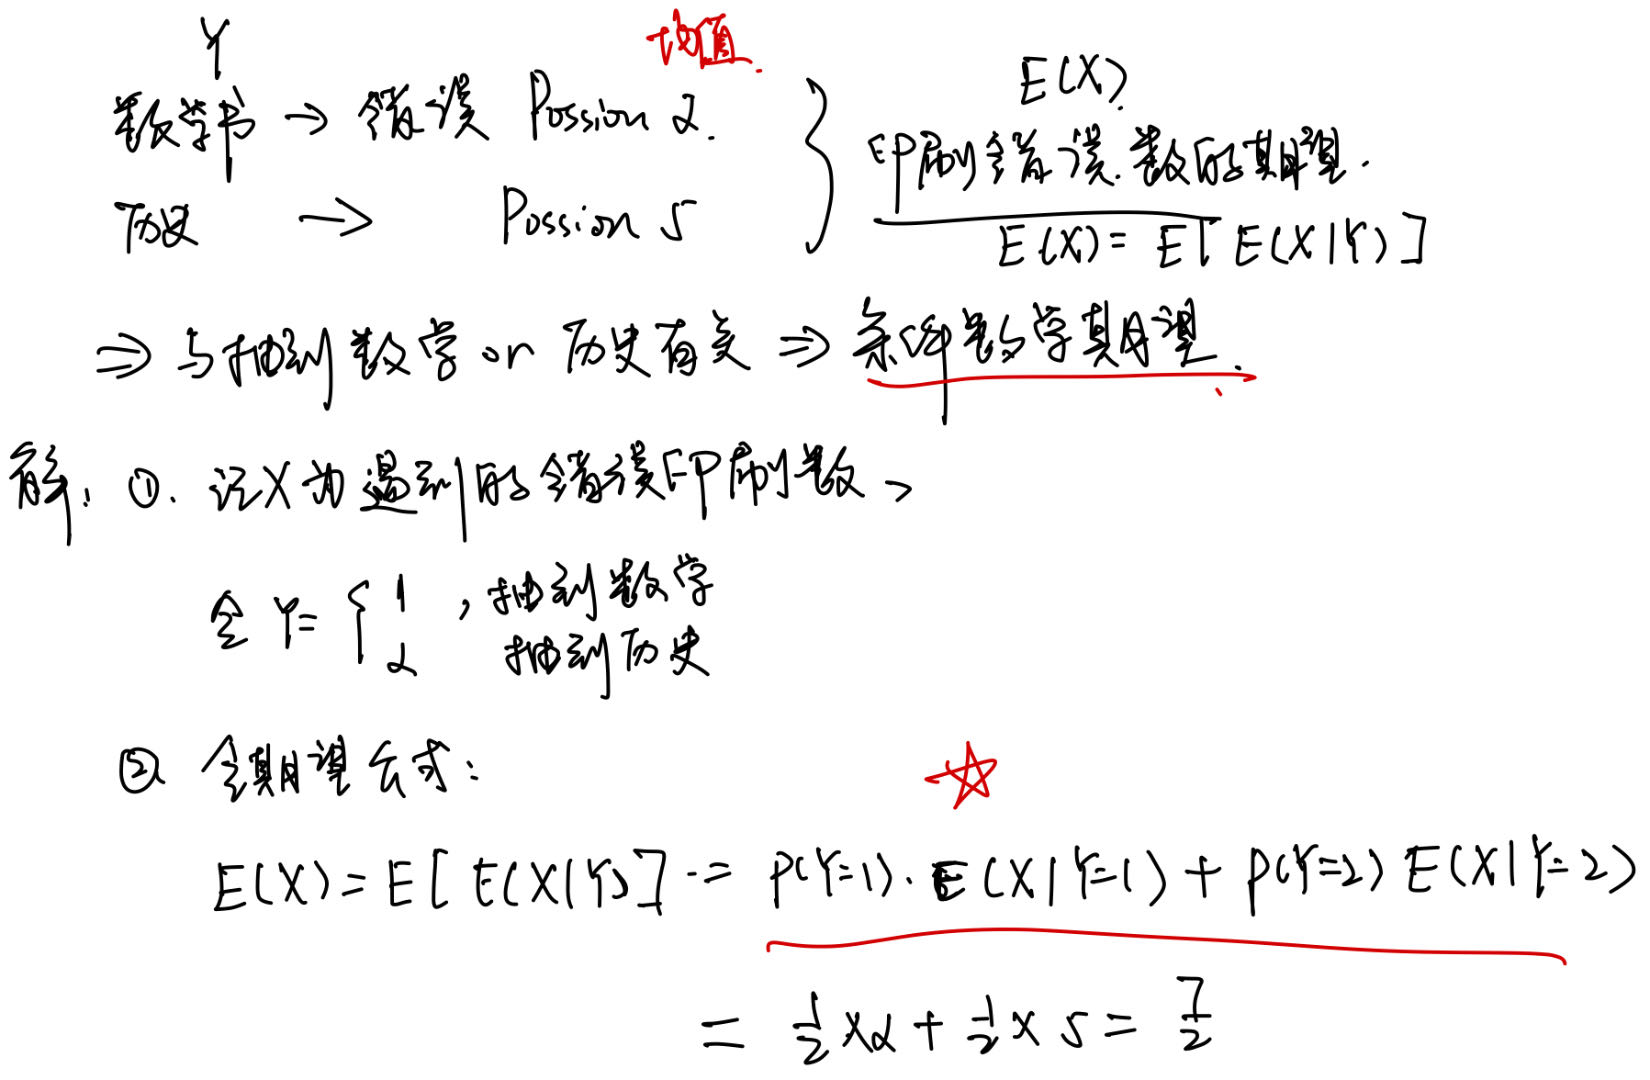 Y
均值.
数学书 → 错误 Possion 2.
历史 → Possion 5
E(X)
印刷错误数的期望.
E(X) = E[E(X|Y)]
⇒ 与抽到数学 or 历史有关 ⇒ 条件数学期望.
解: ①. 记X为遇到的错误印刷数,
令 Y= { 1 , 抽到数学
2 抽到历史
② 全期望公式:
E(X) = E[E(X|Y)] = P(Y=1)·E(X|Y=1) + P(Y=2) E(X|Y=2)
= 1/2 × 2 + 1/2 × 5 = 7/2